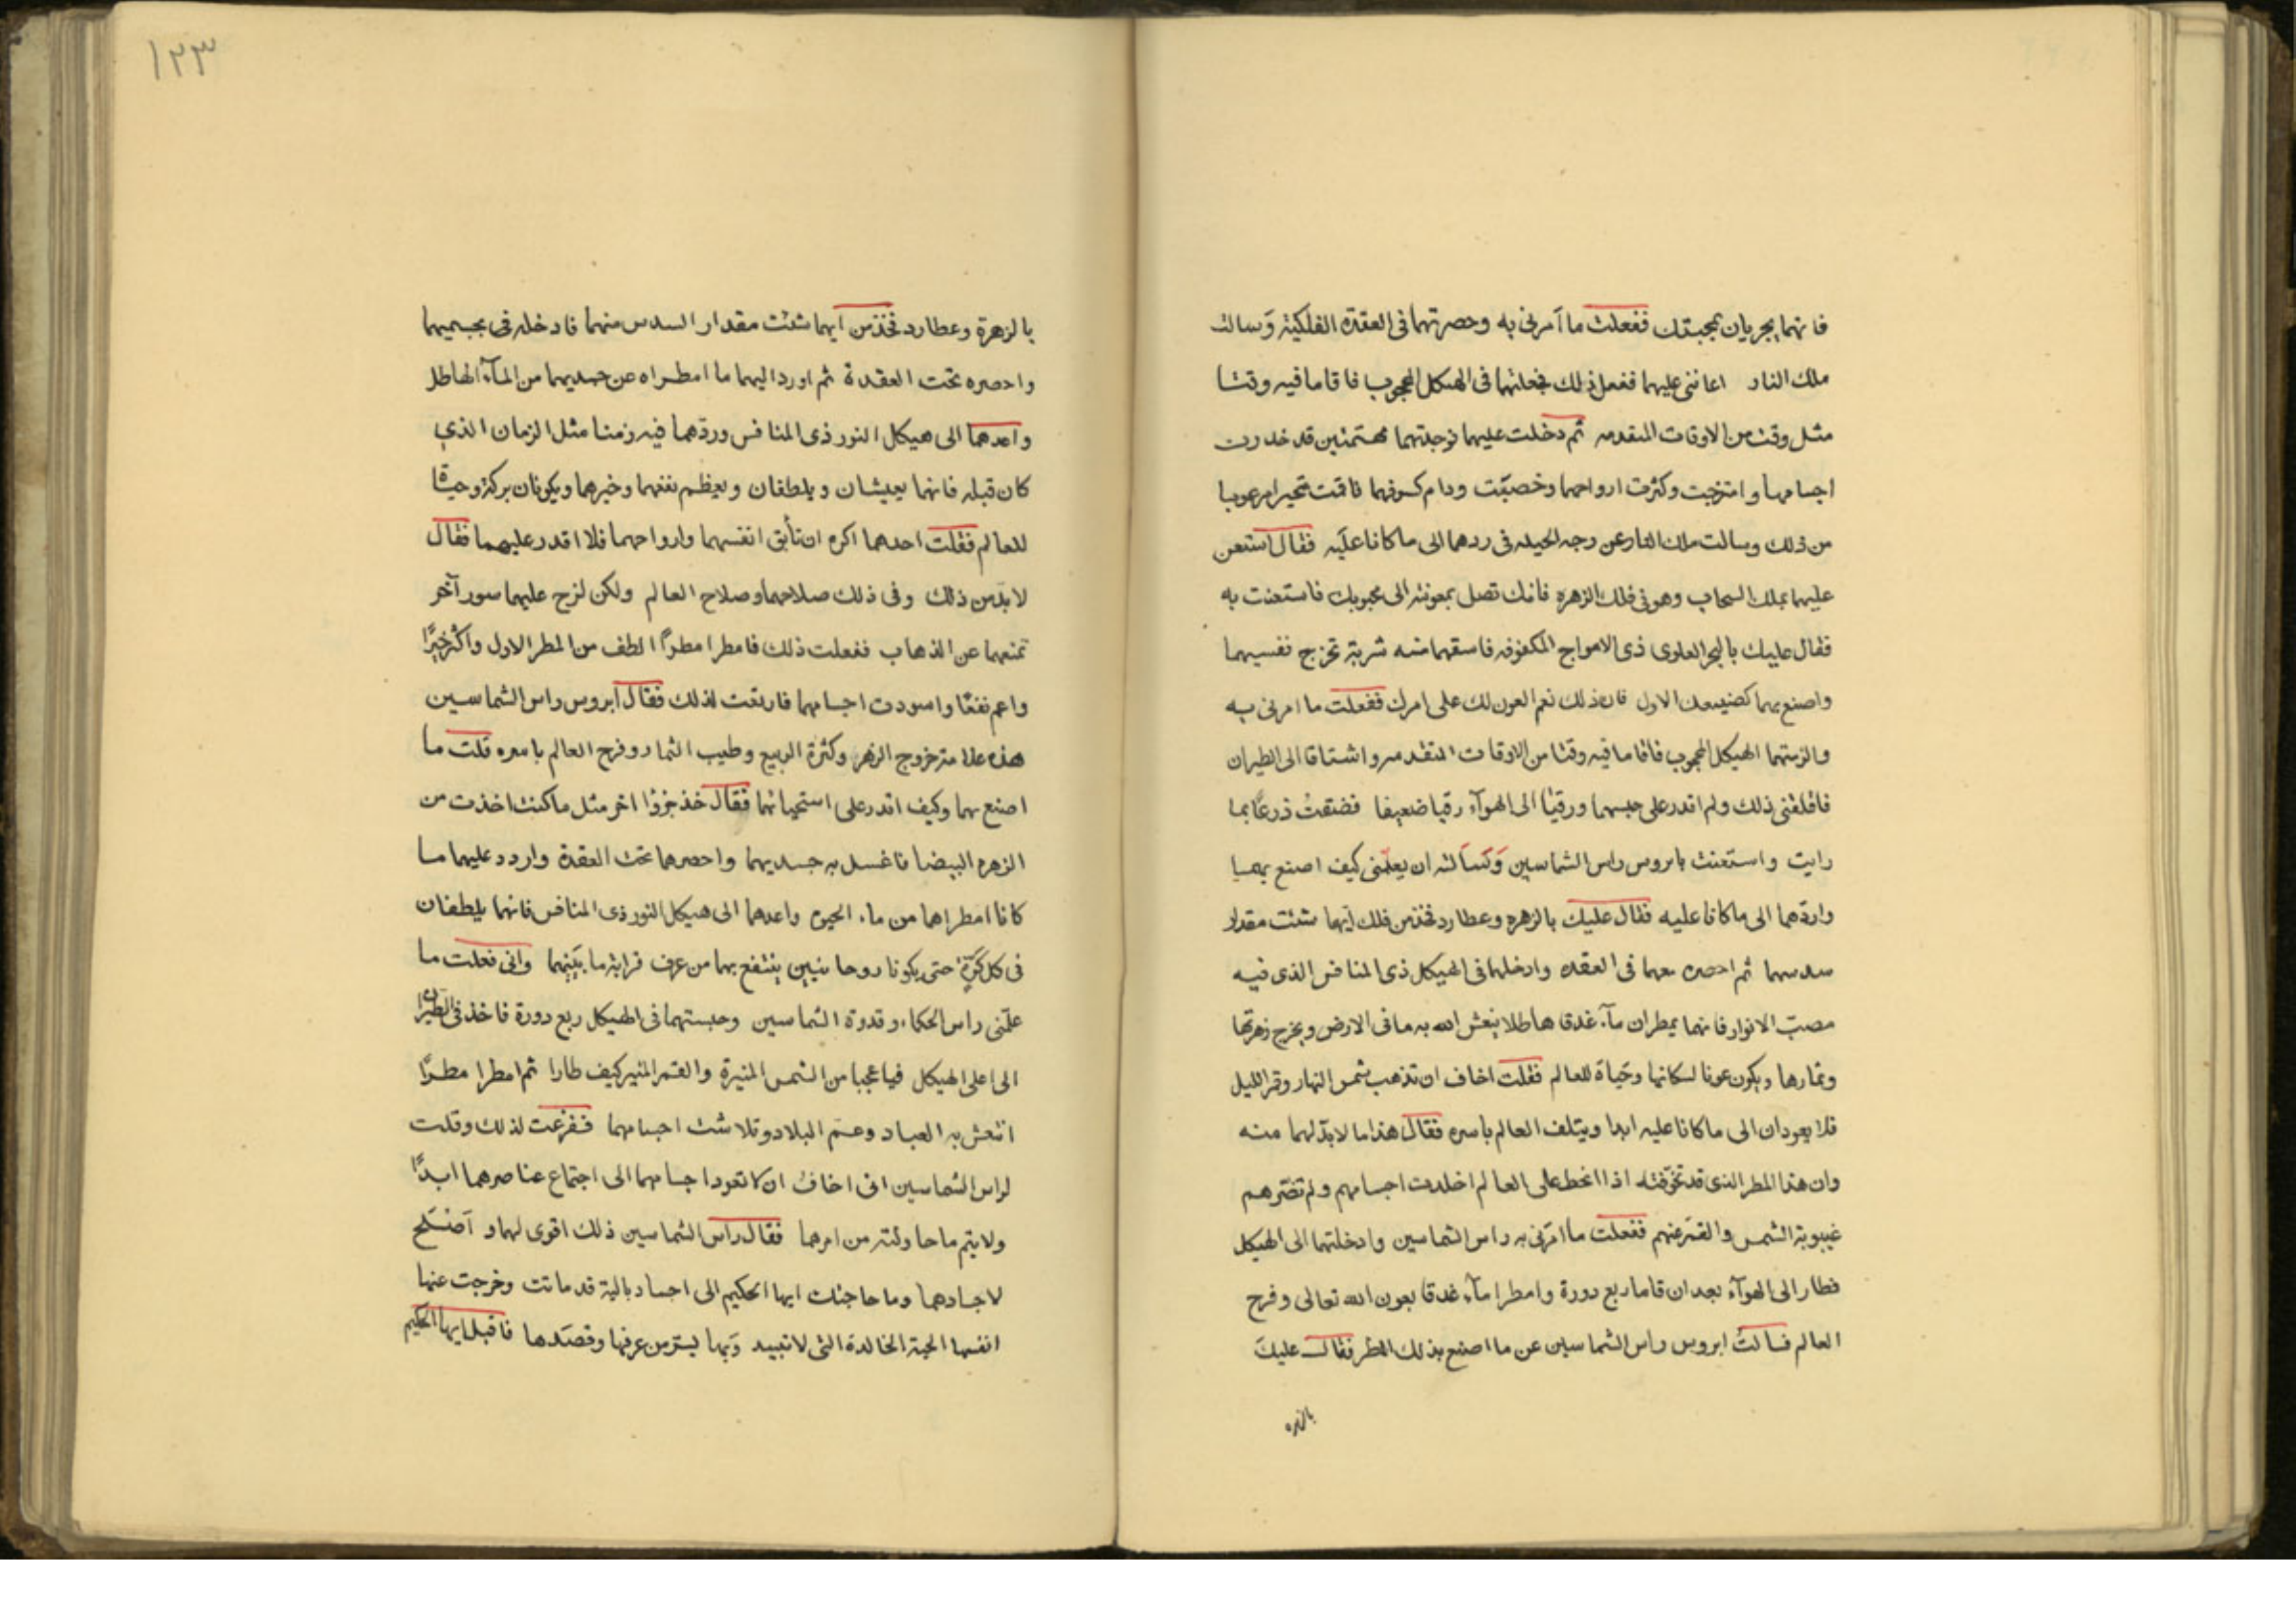 فانهما يجريان بمحبتك ففعلت ما آمرنى به وحصرتهما فى العقدة الفلكية وسالت
ملك النار اعاننى عليهما ففعل ذلك فجعلتهما فى الهيكل المحجوب فاقاما فيه وقتا
مثل وقت من الاوقات المتقدمه ثم دخلت عليهما فوجدتهما قد خدرت
اجسامهما وامتزجت وكثرت ارواحهما وخصبت ودام كسوفهما فاقمت متحيرا مرعوبا
من ذلك وسالت ملك النار عن وجه الحيله فى ردهما الى ما كانا عليه فقال استعن
عليهما بملك السحاب وهو فى فلك الزهره فانك تصل بمعونته الى محبوبك فاستعنت به
فقال عليك بالبحر العلوى ذى الامواج المكفوفه فاسقهما منه شربة تخرج نفسيهما
واصنع بهما كصنيعك الاول فان ذلك نعم العون لك على امرك ففعلت ما امرنى به
والزمتهما الهيكل المحجوب فاقاما فيه وقتا من الاوقات المتقدمه واشتاقا الى الطيران
فاقلقنى ذلك ولم اقدر على حبسهما ورقيا الى الهوآء رقيا ضعيفا فضقت ذرعًا بما
رايت واستعنت بابروس راس الشماسين وَسَالته ان يعلّمنى كيف اصنع بهما
واردّهما الى ما كانا عليه فقال عليك بالزهره وعطارد فخذ من فلك ايهما شئت مقدار
سدسهما ثم احصره معهما فى العقده وادخلهما فى الهيكل ذى المنافس الذى فيه
مصبّ الانوار فانهما يمطران مآء غدقا هاطلا ينعش الله به ما فى الارض ويخرج زهرتها
وثمارها ويكون عونا لسكانها وحَياة للعالم فقلت اخاف ان تذهب شمس النهار وقمر الليل
فلا يعودان الى ما كانا عليه ابدا ويتلف العالم باسره فقال هذا ما لا بدّ لهما منه
وان هذا المطر الذى قد تخوّفته اذا انحط على العالم اخلدت اجسامهم ولم تضرّهم
غيبوبة الشمس والقمر عنهم ففعلت ما امرنى به راس الشماسين وادخلتهما الى الهيكل
فطارا الى الهوآء بعد ان قاما ربع دورة وامطرا مآء غدقا بعون الله تعالى وفرح
العالم فسالتُ ابروس راس الشماسين عن ما اصنع بذلك المطر فقال عليكَ
بالزهره
١٢٣
بالزهرة وعطارد فخذ من ايهما شئت مقدار السدس منهما فادخله فى جسميهما
واحصره تحت العقدة ثم اورد اليهما ما امطراه عن جسديهما من المآء الهاطل
واعدهما الى هيكل النور ذى المنافس وردّهما فيه زمنا مثل الزمان الذى
كان قبله فانهما يعيشان ويلطفان ويعظم نفعهما وخيرهما ويكونان بركة وحياة
للعالم فقلت احدهما اكره ان تأبق انفسهما وارواحهما فلا اقدر عليهما فقال
لا بدّ من ذلك وفى ذلك صلاحهما وصلاح العالم ولكن لزج عليهما سور آخر
تمنعهما عن الذهاب ففعلت ذلك فامطرا مطرًا الطف من المطر الاول واكثر خيرًا
واعم نفعًا واسودت اجسامهما فارتعت لذلك فقال ابروس راس الشماسين
هذه علامة خروج الزهر وكثرة الربيع وطيب الثمار وفرح العالم باسره قلت ما
اصنع بهما وكيف اقدر على استحيائهما فقال خذ جزؤا اخر مثل ما كنت اخذت من
الزهره البيضا فاغسل به جسديهما واحصرهما تحت العقدة واردد عليهما ما
كانا امطراها من ماء الحيوه واعدهما الى هيكل النور ذى المنافس فانهما يلطفان
فى كل كرّة حتى يكونا روحانيين ينتفع بهما من عرف قرابة ما بينهما وانى فعلت ما
علّمنى راس الحكماء وقدوة الشماسين وحبستهما فى الهيكل ربع دورة فاخذ فى الطيران
الى اعلى الهيكل فيا عجبا من الشمس المنيرة والقمر المنير كيف طارا ثم امطرا مطرًا
انتعش به العباد وعم البلاد وتلاشت اجسامهما ففزعت لذلك وقلت
لراس الشماسين انى اخاف ان لا تعود اجسامهما الى اجتماع عناصرهما ابدًا
ولا يتم ما حاولته من امرهما فقال رأس الشماسين ذلك اقوى لهما وَاَصْلح
لاجسادهما وما حاجتك ايها الحكيم الى اجساد بالية قد ماتت وخرجت عنها
انفسها الحية الخالدة التى لا تبيد وَبها يستر من عرفها وقصدها فاقبل ايها الحكيم